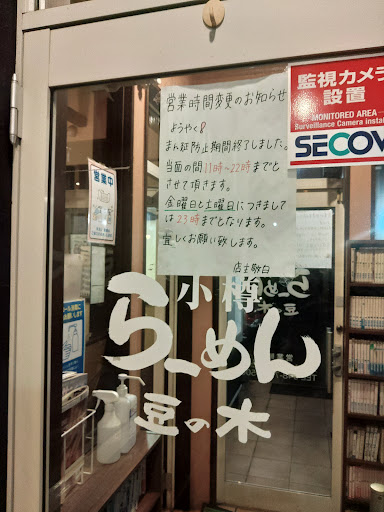 営業時間変更のお知らせ
ようやく!
まん延防止期間終了しました。
当面の間11時~22時までと
させて頂きます。
金曜日と土曜日につきまして
は23時までとなります。
宜しくお願い致します。
店主敬白
監視カメラ
設置
MONITORED AREA
Surveillance Camera instal
SECOM
営業中
小樽
らーめん
豆の木